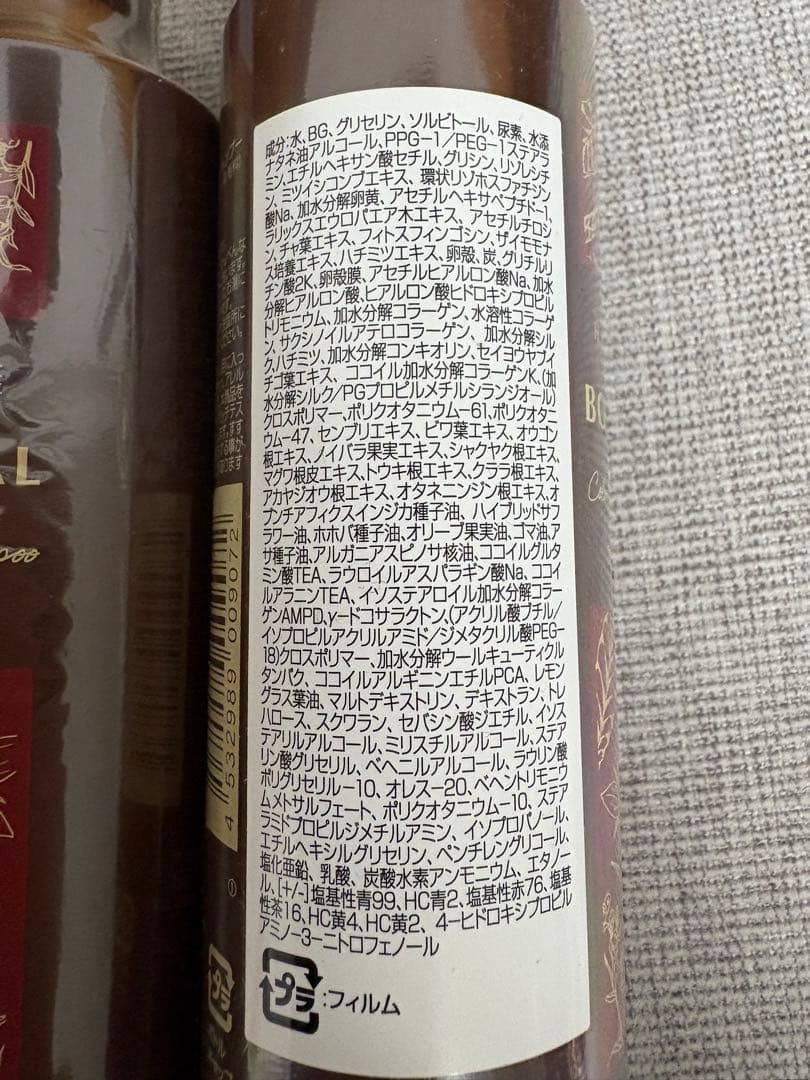 成分:水、BG、グリセリン、ソルビトール、尿素、水添
ナタネ油アルコール、PPG-1/PEG-1ステアラ
ミン、エチルヘキサン酸セチル、グリシン、リゾレシチ
ン、ミツイシコンブエキス、環状リゾホスファチジン
酸Na、加水分解卵黄、アセチルヘキサペプチド-1、
ラリックスエウロパエア木エキス、アセチルチロシ
ン、チャ葉エキス、フィトスフィンゴシン、ザイモモナ
ス培養エキス、ハチミツエキス、卵殻、炭、グリチルリ
チン酸2K、卵殻膜、アセチルヒアルロン酸Na、加水
分解ヒアルロン酸、ヒアルロン酸ヒドロキシプロピル
トリモニウム、加水分解コラーゲン、水溶性コラーゲ
ン、サクシノイルアテロコラーゲン、加水分解シル
ク、ハチミツ、加水分解コンキオリン、セイヨウヤブイ
チゴ葉エキス、ココイル加水分解コラーゲンK、(加
水分解シルク/PGプロピルメチルシランジオール)
クロスポリマー、ポリクオタニウム-61、ポリクオタニ
ウム-47、センブリエキス、ビワ葉エキス、オウゴン
根エキス、ノイバラ果実エキス、シャクヤク根エキス、
マグワ根皮エキス、トウキ根エキス、クララ根エキス、
アカヤジオウ根エキス、オタネニンジン根エキス、オ
プンチアフィクスインジカ種子油、ハイブリッドサフ
ラワー油、ホホバ種子油、オリーブ果実油、ゴマ油、ア
サ種子油、アルガニアスピノサ核油、ココイルグルタ
ミン酸TEA、ラウロイルアスパラギン酸Na、ココイ
ルアラニンTEA、イソステアロイル加水分解コラー
ゲンAMPD、γ-ドコサラクトン、(アクリル酸ブチル/
イソプロピルアクリルアミド/ジメタクリル酸PEG-
18)クロスポリマー、加水分解ウールキューティクル
タンパク、ココイルアルギニンエチルPCA、レモン
グラス葉油、マルトデキストリン、デキストラン、トレ
ハロース、スクワラン、セバシン酸ジエチル、イソス
テアリルアルコール、ミリスチルアルコール、ステア
リン酸グリセリル、ベヘニルアルコール、ラウリン酸
ポリグリセリル-10、オレス-20、ベヘントリモニウ
ムメトサルフェート、ポリクオタニウム-10、ステア
ラミドプロピルジメチルアミン、イソプロパノール、
エチルヘキシルグリセリン、ペンチレングリコール、
塩化亜鉛、乳酸、炭酸水素アンモニウム、エタノー
ル、[+/-]塩基性青99、HC青2、塩基性赤76、塩基
性茶16、HC黄4、HC黄2、4-ヒドロキシプロピル
アミノ-3-ニトロフェノール
プラ :フィルム
4 532989 009072
プラ
AL
BO